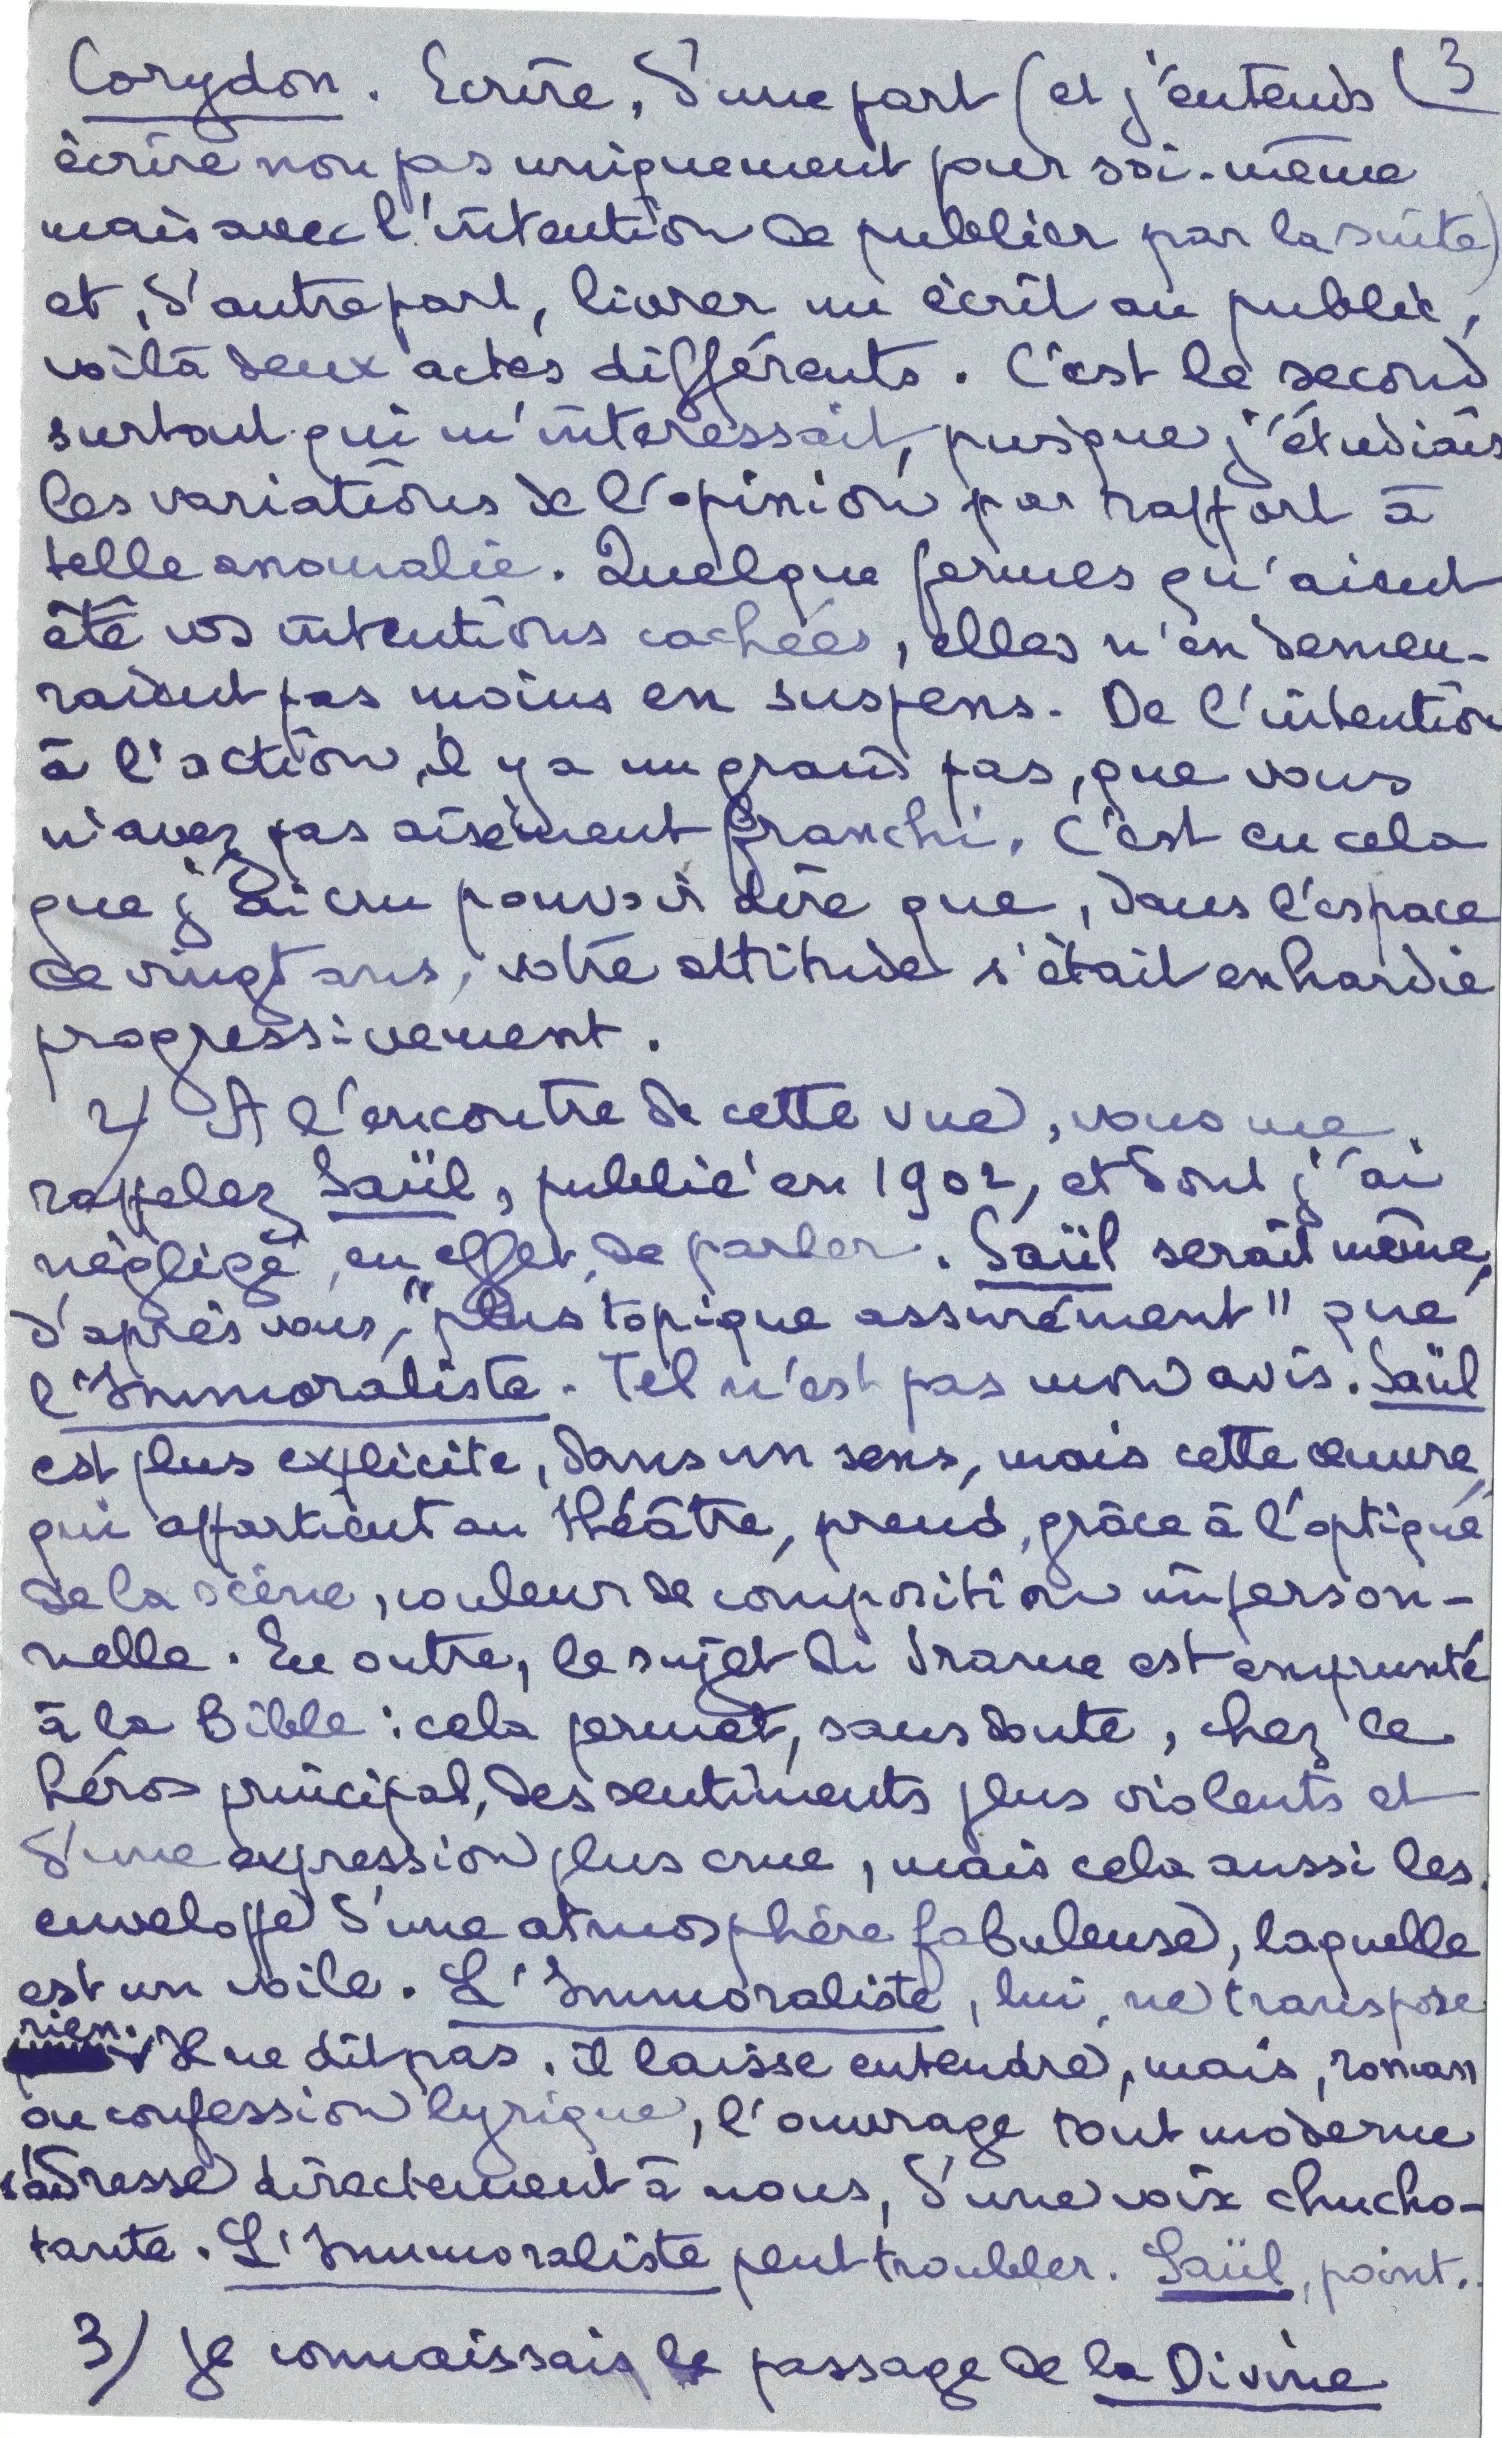 Corydon. Ecrire, d'une part (et j'entends (3
écrire non pas uniquement pour soi-même
mais avec l'intention de publier par la suite)
et, d'autre part, livrer un écrit au public,
voilà deux actes différents. C'est le second
surtout qui m'intéressait, puisque j'étudiais
les variations de l'opinion par rapport à
telle anomalie. Quelque fermes qu'aient
été vos intentions cachées, elles n'en demeu-
raient pas moins en suspens. De l'intention
à l'action, il y a un grand pas, que vous
n'avez pas aisément franchi. C'est en cela
que j'ai cru pouvoir dire que, dans l'espace
de vingt ans, votre attitude s'était enhardie
progressivement.
2/ A l'encontre de cette vue, vous me
rappelez Saül, publié en 1902, et dont j'ai
négligé, en effet, de parler. Saül serait même,
d'après vous, "plus topique assurément" que
l'Immoraliste. Tel n'est pas mon avis. Saül
est plus explicite, dans un sens, mais cette œuvre,
qui appartient au théâtre, prend, grâce à l'optique
de la scène, couleur de composition imperson-
nelle. En outre, le sujet du drame est emprunté
à la Bible : cela permet, sans doute, chez le
héros principal, des sentiments plus violents et
d'une expression plus crue, mais cela aussi les
enveloppe d'une atmosphère fabuleuse, laquelle
est un voile. L'Immoraliste, lui, ne transpose
rien. Il ne dit pas, il laisse entendre, mais, roman
ou confession lyrique, l'ouvrage tout moderne
s'adresse directement à nous, d'une voix chucho-
tante. L'Immoraliste peut troubler. Saül, point.
3/ Je connaissais le passage de la Divine